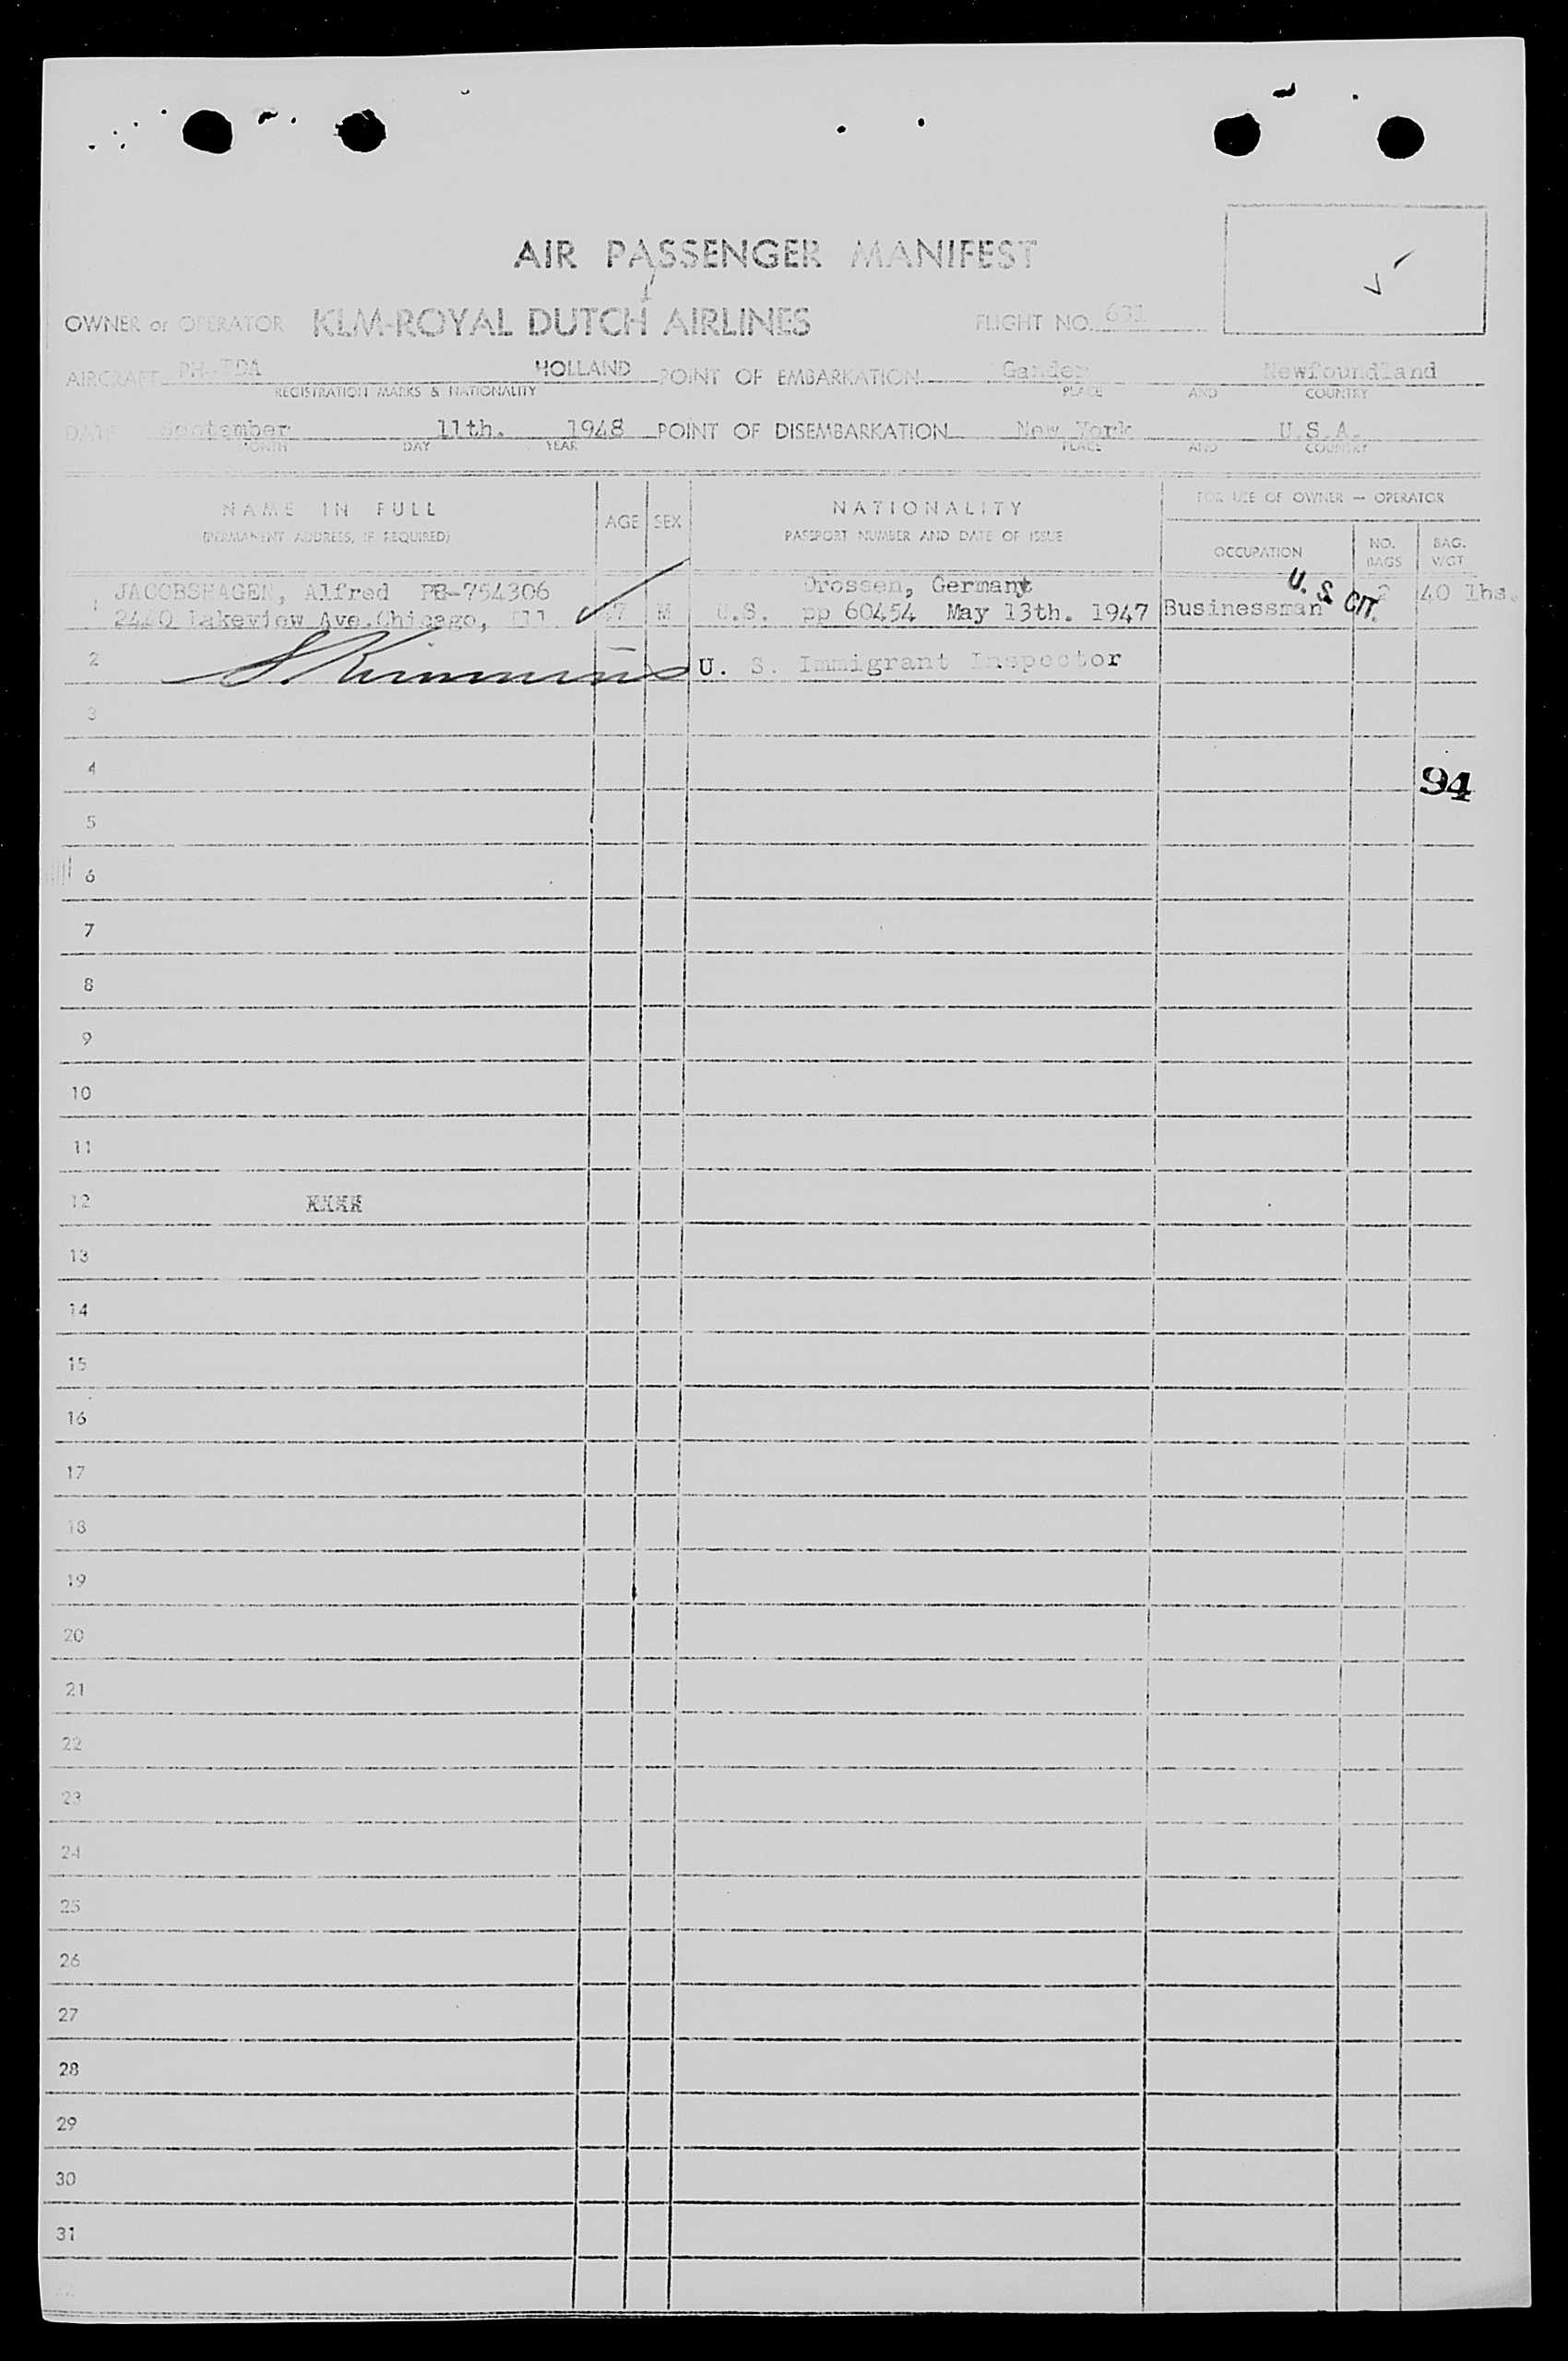 AIR PASSENGER MANIFEST
OWNER or OPERATOR KLM-ROYAL DUTCH AIRLINES FLIGHT NO. 631
AIRCRAFT PH-TDA HOLLAND POINT OF EMBARKATION Gander Newfoundland
REGISTRATION MARKS & NATIONALITY PLACE AND COUNTRY
DATE September 11th. 1948 POINT OF DISEMBARKATION New York U.S.A.
MONTH DAY YEAR PLACE AND COUNTRY
NAME IN FULL AGE SEX NATIONALITY FOR USE OF OWNER — OPERATOR
(PERMANENT ADDRESS, IF REQUIRED) PASSPORT NUMBER AND DATE OF ISSUE OCCUPATION NO. BAGS BAG. WGT.
1 JACOBSHAGEN, Alfred PB-754306 Drossen, Germany U. S. CIT. 2 40 lbs.
2440 Lakeview Ave.Chicago, Ill 47 M U.S. pp 60454 May 13th. 1947 Businessman
2 U. S. Immigrant Inspector
3
4 94
5
6
7
8
9
10
11
12
13
14
15
16
17
18
19
20
21
22
23
24
25
26
27
28
29
30
31